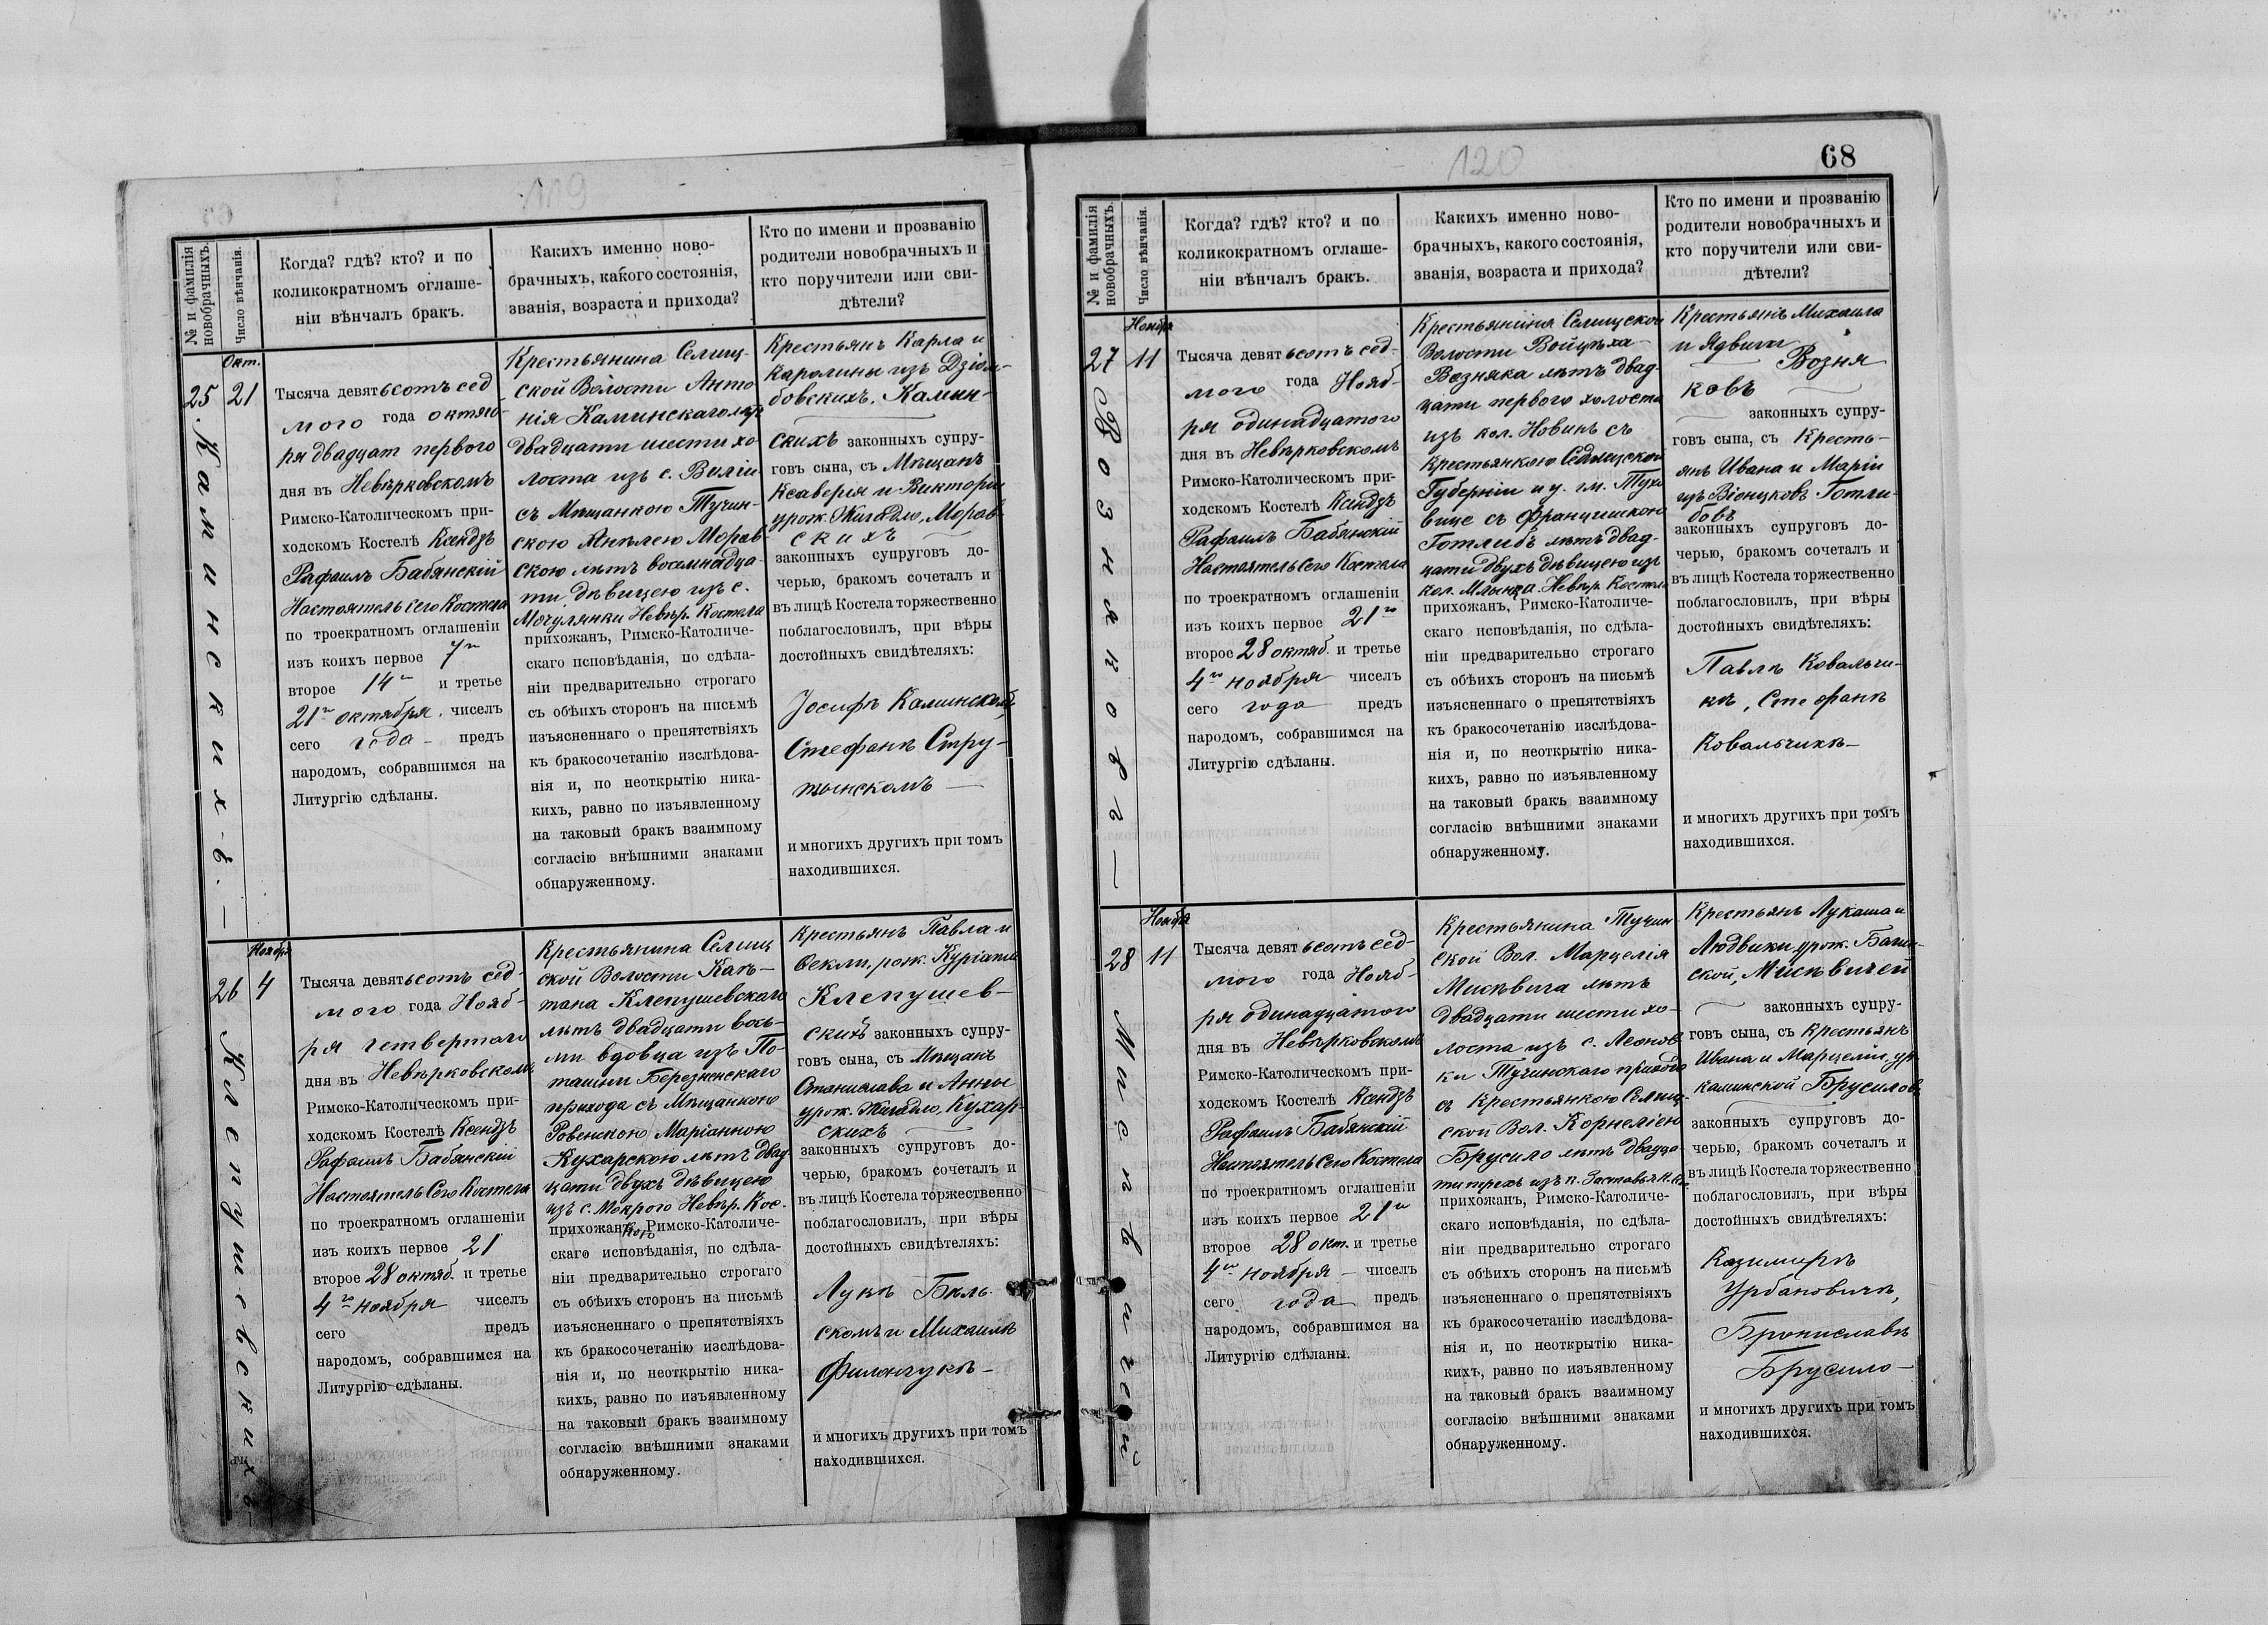 119
№ и фамилія
новобрачныхъ.
Число вѣнчанія.
Когда? гдѣ? кто? и по
коликократномъ оглаше-
ніи вѣнчалъ бракъ.
Какихъ именно ново-
брачныхъ, какого состоянія,
званія, возраста и прихода?
Кто по имени и прозванію
родители новобрачныхъ и
кто поручители или сви-
дѣтели?
25
Каминскихъ.—
Окт.
21
Тысяча девятьсотъ сед
мого года октяб-
ря двадцат первого
дня въ Невѣрковскомъ
Римско-Католическомъ при-
ходскомъ Костелѣ Ксендзъ
Рафаилъ Бабянскій
Настоятель сего Костела
по троекратномъ оглашеніи
изъ коихъ первое 7го
второе 14го и третье
21го октября, чиселъ
сего года — предъ
народомъ, собравшимся на
Литургію сдѣланы.
Крестьянина Селищ-
ской Волости Анто
нія Каминскаго лѣтъ
двадцати шести хо
лоста изъ с. Воліи
съ Мѣщанкою Тучин-
скою Анѣлею Морав-
скою лѣтъ восемнадца-
ти дѣвицею изъ с.
Мочулянки Невѣр. Костела
прихожанъ, Римско-Католиче-
скаго исповѣданія, по сдѣла-
ніи предварительно строгаго
съ обѣихъ сторонъ на письмѣ
изъясненнаго о препятствіяхъ
къ бракосочетанію изслѣдова-
нія и, по неоткрытію ника-
кихъ, равно по изъявленному
на таковый бракъ взаимному
согласію внѣшними знаками
обнаруженному.
Крестьянъ Карла и
Каролины изъ Дзіом-
бовскихъ, Камин-
скихъ законныхъ супру-
говъ сына, съ Мѣщанъ
Ксаверія и Викторіи
урож. Жигадло, Морав
скихъ
законныхъ супруговъ до-
черью, бракомъ сочеталъ и
въ лицѣ Костела торжественно
поблагословилъ, при вѣры
достойныхъ свидѣтеляхъ:
Іосифѣ Каминскомъ,
Стефанѣ Стру-
жинскомъ —
и многихъ другихъ при томъ
находившихся.
26
Клепушевскихъ—
Ноября
4
Тысяча девятьсотъ сед-
мого года Нояб-
ря четвертого
дня въ Невѣрковскомъ
Римско-Католическомъ при-
ходскомъ Костелѣ Ксендзъ
Рафаилъ Бабянскій
Настоятель Сего Костела
по троекратномъ оглашеніи
изъ коихъ первое 21
второе 28 октяб. и третье
4го ноября чиселъ
сего предъ
народомъ, собравшимся на
Литургію сдѣланы.
Крестьянина Селищ
ской Волости Каэ-
тана Клепушевскаго
лѣтъ двадцати вось-
ми вдовца изъ По-
ташни Березненскаго
прихода съ Мѣщанкою
Ровенскою Маріанною
Кухарскою лѣтъ двад-
цати двухъ дѣвицею
изъ с. Мокрого Невѣр. Кос.
прихожанъ, Римско-Католиче-
скаго исповѣданія, по сдѣла-
ніи предварительно строгаго
съ обѣихъ сторонъ на письмѣ
изъясненнаго о препятствіяхъ
къ бракосочетанію изслѣдова-
нія и, по неоткрытію ника-
кихъ, равно по изъявленному
на таковый бракъ взаимному
согласію внѣшними знаками
обнаруженному.
Крестьянъ Павла и
Ѳеклы, рож.
Клепушев-
скихъ законныхъ супру-
говъ сына, съ Мѣщанъ
Станислава и Анны
урож. Жигадло, Кухар-
скихъ
законныхъ супруговъ до-
черью, бракомъ сочеталъ и
въ лицѣ Костела торжественно
поблагословилъ, при вѣры
достойныхъ свидѣтеляхъ:
Лукѣ Бѣль-
скомъ и Михаилѣ
Филончукѣ —
и многихъ другихъ при томъ
находившихся.
120
68
№ и фамилія
новобрачныхъ.
Число вѣнчанія.
Когда? гдѣ? кто? и по
коликократномъ оглаше-
ніи вѣнчалъ бракъ.
Какихъ именно ново-
брачныхъ, какого состоянія,
званія, возраста и прихода?
Кто по имени и прозванію
родители новобрачныхъ и
кто поручители или сви-
дѣтели?
27
Возняковъ —
Ноября
11
Тысяча девятьсотъ сед-
мого года Нояб-
ря одинадцатого
дня въ Невѣрковскомъ
Римско-Католическомъ при-
ходскомъ Костелѣ Ксендзъ
Рафаилъ Бабянскій
Настоятель Сего Костела
по троекратномъ оглашеніи
изъ коихъ первое 21го
второе 28 октяб. и третье
4го ноября чиселъ
сего года предъ
народомъ, собравшимся на
Литургію сдѣланы.
Крестьянина Селищской
Волости Войцѣха
Возняка лѣтъ двад-
цати первого холоста
изъ кол. Новинъ съ
крестьянкою Седлецской
Губерніи и у. гм. Тухо
вице съ Францишкою
Готлибъ лѣтъ двад-
цати двухъ дѣвицею изъ
кол. Млынца Невѣр. Костела
прихожанъ, Римско-Католиче-
скаго исповѣданія, по сдѣла-
ніи предварительно строгаго
съ обѣихъ сторонъ на письмѣ
изъясненнаго о препятствіяхъ
къ бракосочетанію изслѣдова-
нія и, по неоткрытію ника-
кихъ, равно по изъявленному
на таковый бракъ взаимному
согласію внѣшними знаками
обнаруженному.
Крестьянъ Михаила
и Ядвиги
Возня
ковъ
законныхъ супру-
говъ сына, съ Кресть-
янъ Ивана и Маріи
изъ В 
Готли-
бовъ
законныхъ супруговъ до-
черью, бракомъ сочеталъ и
въ лицѣ Костела торжественно
поблагословилъ, при вѣры
достойныхъ свидѣтеляхъ:
Павлѣ Ковальчи-
кѣ, Стефанѣ
Ковальчикѣ —
и многихъ другихъ при томъ
находившихся.
28
Мисѣвичей
Ноября
11
Тысяча девятьсотъ сед-
мого года Нояб-
ря одинадцатого
дня въ Невѣрковскомъ
Римско-Католическомъ при-
ходскомъ Костелѣ Ксендзъ
Рафаилъ Бабянскій
Настоятель Сего Костела
по троекратномъ оглашеніи
изъ коихъ первое 21го
второе 28 окт. и третье
4го ноября — чиселъ
сего года предъ
народомъ, собравшимся на
Литургію сдѣланы.
Крестьянина Тучин
ской Вол. Марцелія
Мисѣвича лѣтъ
двадцати шести хо-
лоста изъ с. Леонов
ки Тучинскаго прихода
съ Крестьянкою Селищ-
ской Вол. Корнеліею
Брусило лѣтъ двадца
ти трехъ изъ п. Заставья Н. Кос.
прихожанъ, Римско-Католиче-
скаго исповѣданія, по сдѣла-
ніи предварительно строгаго
съ обѣихъ сторонъ на письмѣ
изъясненнаго о препятствіяхъ
къ бракосочетанію изслѣдова-
нія и, по неоткрытію ника-
кихъ, равно по изъявленному
на таковый бракъ взаимному
согласію внѣшними знаками
обнаруженному.
Крестьянъ Лукаша и
Людвики, урож. Багин-
ской, Мисѣвичей
законныхъ супру-
говъ сына, съ Крестьянъ
Ивана и Марцеліи, ур.
Каминской Брусиловъ
законныхъ супруговъ до-
черью, бракомъ сочеталъ и
въ лицѣ Костела торжественно
поблагословилъ, при вѣры
достойныхъ свидѣтеляхъ:
Казимирѣ
Урбановичѣ,
Брониславѣ
Брусило —
и многихъ другихъ при томъ
находившихся.